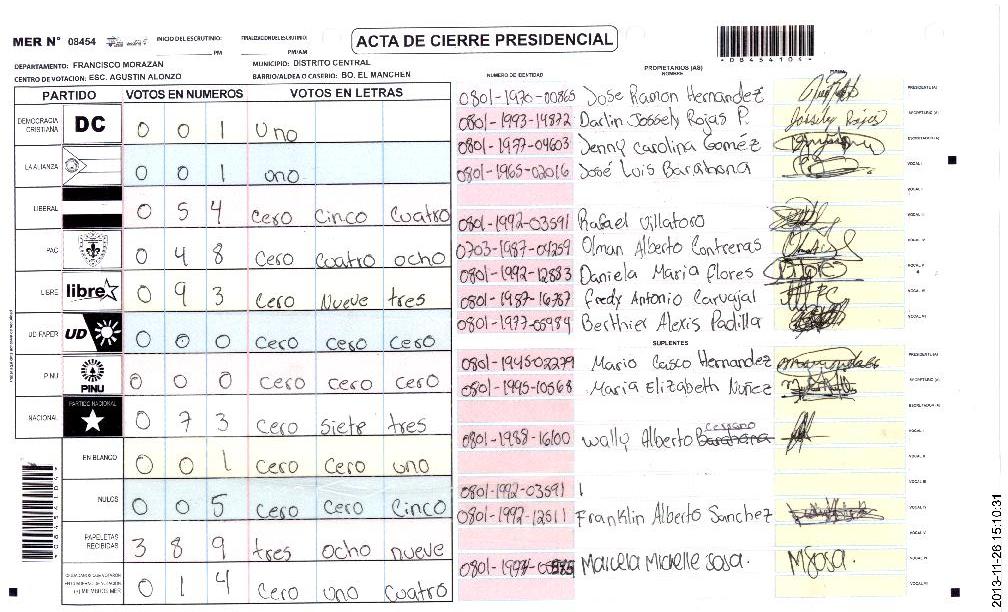 ACTA DE CIERRE PRESIDENCIAL
MER N° 08454
INICIO DEL ESCRUTINIO: PM
FINALIZACION DEL ESCRUTINIO: PM/AM
DEPARTAMENTO: FRANCISCO MORAZAN
MUNICIPIO: DISTRITO CENTRAL
CENTRO DE VOTACION: ESC. AGUSTIN ALONZO
BARRIO/ALDEA O CASERIO: BO. EL MANCHEN
PARTIDO VOTOS EN NUMEROS VOTOS EN LETRAS
DEMOCRACIA CRISTIANA DC 0 0 1 uno
LA ALIANZA 0 0 1 uno
LIBERAL 0 5 4 cero cinco cuatro
PAC 0 4 8 cero cuatro ocho
LIBRE libre 0 9 3 cero nueve tres
UD-FAPER UD 0 0 0 cero cero cero
PINU PINU 0 0 0 cero cero cero
NACIONAL PARTIDO NACIONAL 0 7 3 cero siete tres
EN BLANCO 0 0 1 cero cero uno
NULOS 0 0 5 cero cero cinco
PAPELETAS RECIBIDAS 3 8 9 tres ocho nueve
0 1 4 cero uno cuatro
*08454104*
NUMERO DE IDENTIDAD PROPIETARIOS (AS) NOMBRE FIRMA
0801-1970-00865 Jose Ramon Hernandez PRESIDENTE (A)
0801-1993-14872 Darlin Jossely Rojas P. Jossely Rojas SECRETARIO (A)
0801-1977-04603 Jenny Carolina Gomez ESCRUTADOR (A)
0801-1965-02016 José Luis Barahona VOCAL I
0801-1992-03591 Rafael Villatoro
0703-1987-04259 Olman Alberto Contreras
0801-1992-12883 Daniela Maria flores
0801-1987-16767 fredy Antonio Carvajal
0801-1977-05984 Berthier Alexis Padilla
SUPLENTES
0801-1945-02279 Mario Casco Hernandez PRESIDENTE (A)
0801-1995-10568 Maria Elizabeth Nuñez SECRETARIO (A)
0801-1988-16100 Wally Alberto Barahona
0801-1992-03591
0801-1992-12511 Franklin Alberto Sanchez
Marcela Michelle Sosa. MSosa.
2013-11-26 15:10:31